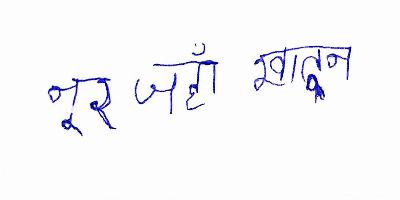 नूर जहाँ खातून